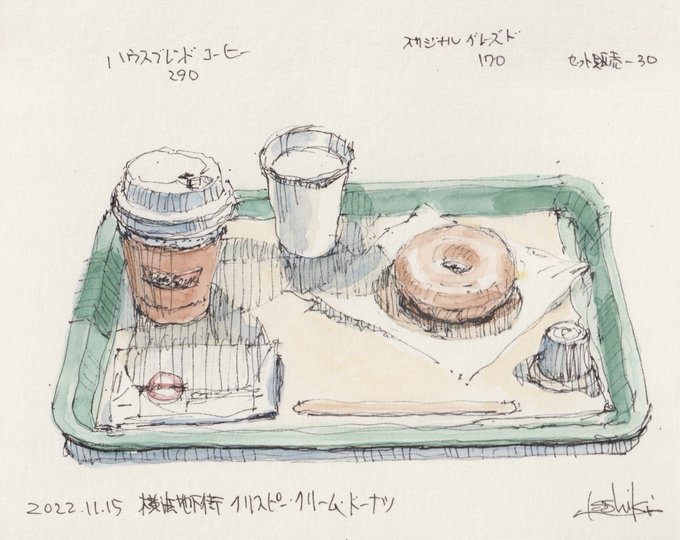 ハウスブレンド コーヒー
290
オリジナル グレーズド
170
セット販売 -30
2022.11.15 横浜地下街 クリスピー・クリーム・ドーナツ
Toshiki